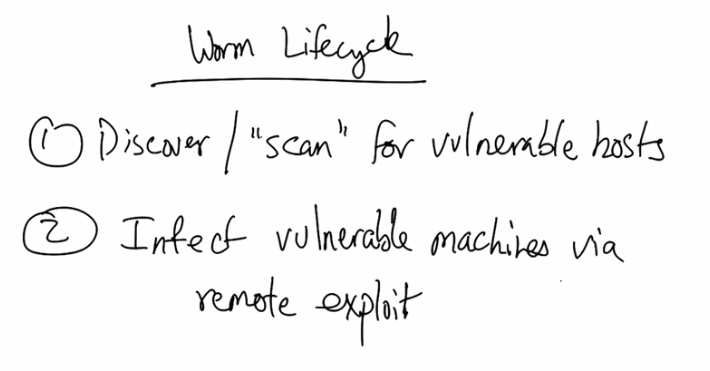 Worm Lifecycle
① Discover / "scan" for vulnerable hosts
② Infect vulnerable machines via
remote exploit